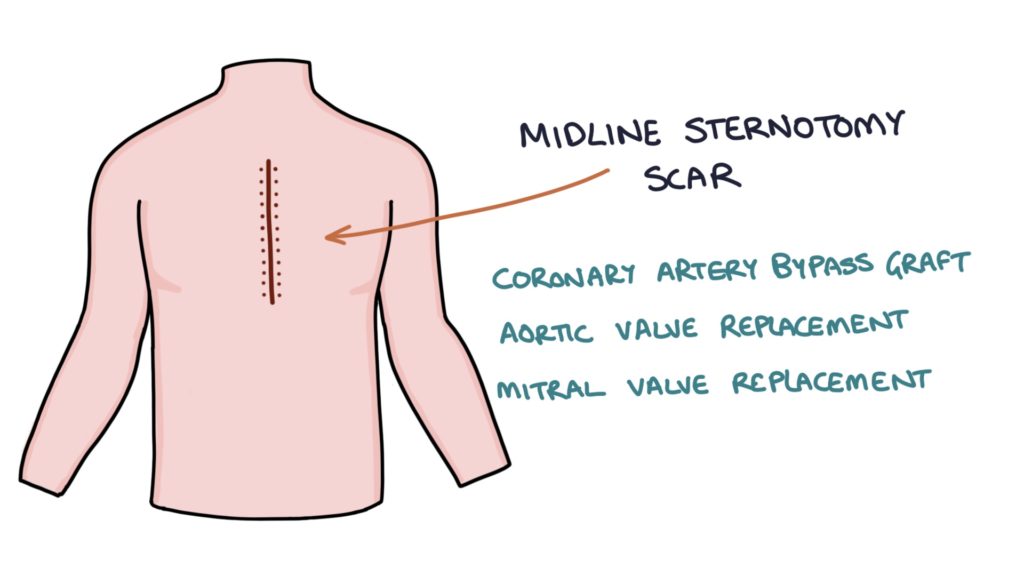 MIDLINE STERNOTOMY
SCAR
CORONARY ARTERY BYPASS GRAFT
AORTIC VALVE REPLACEMENT
MITRAL VALVE REPLACEMENT